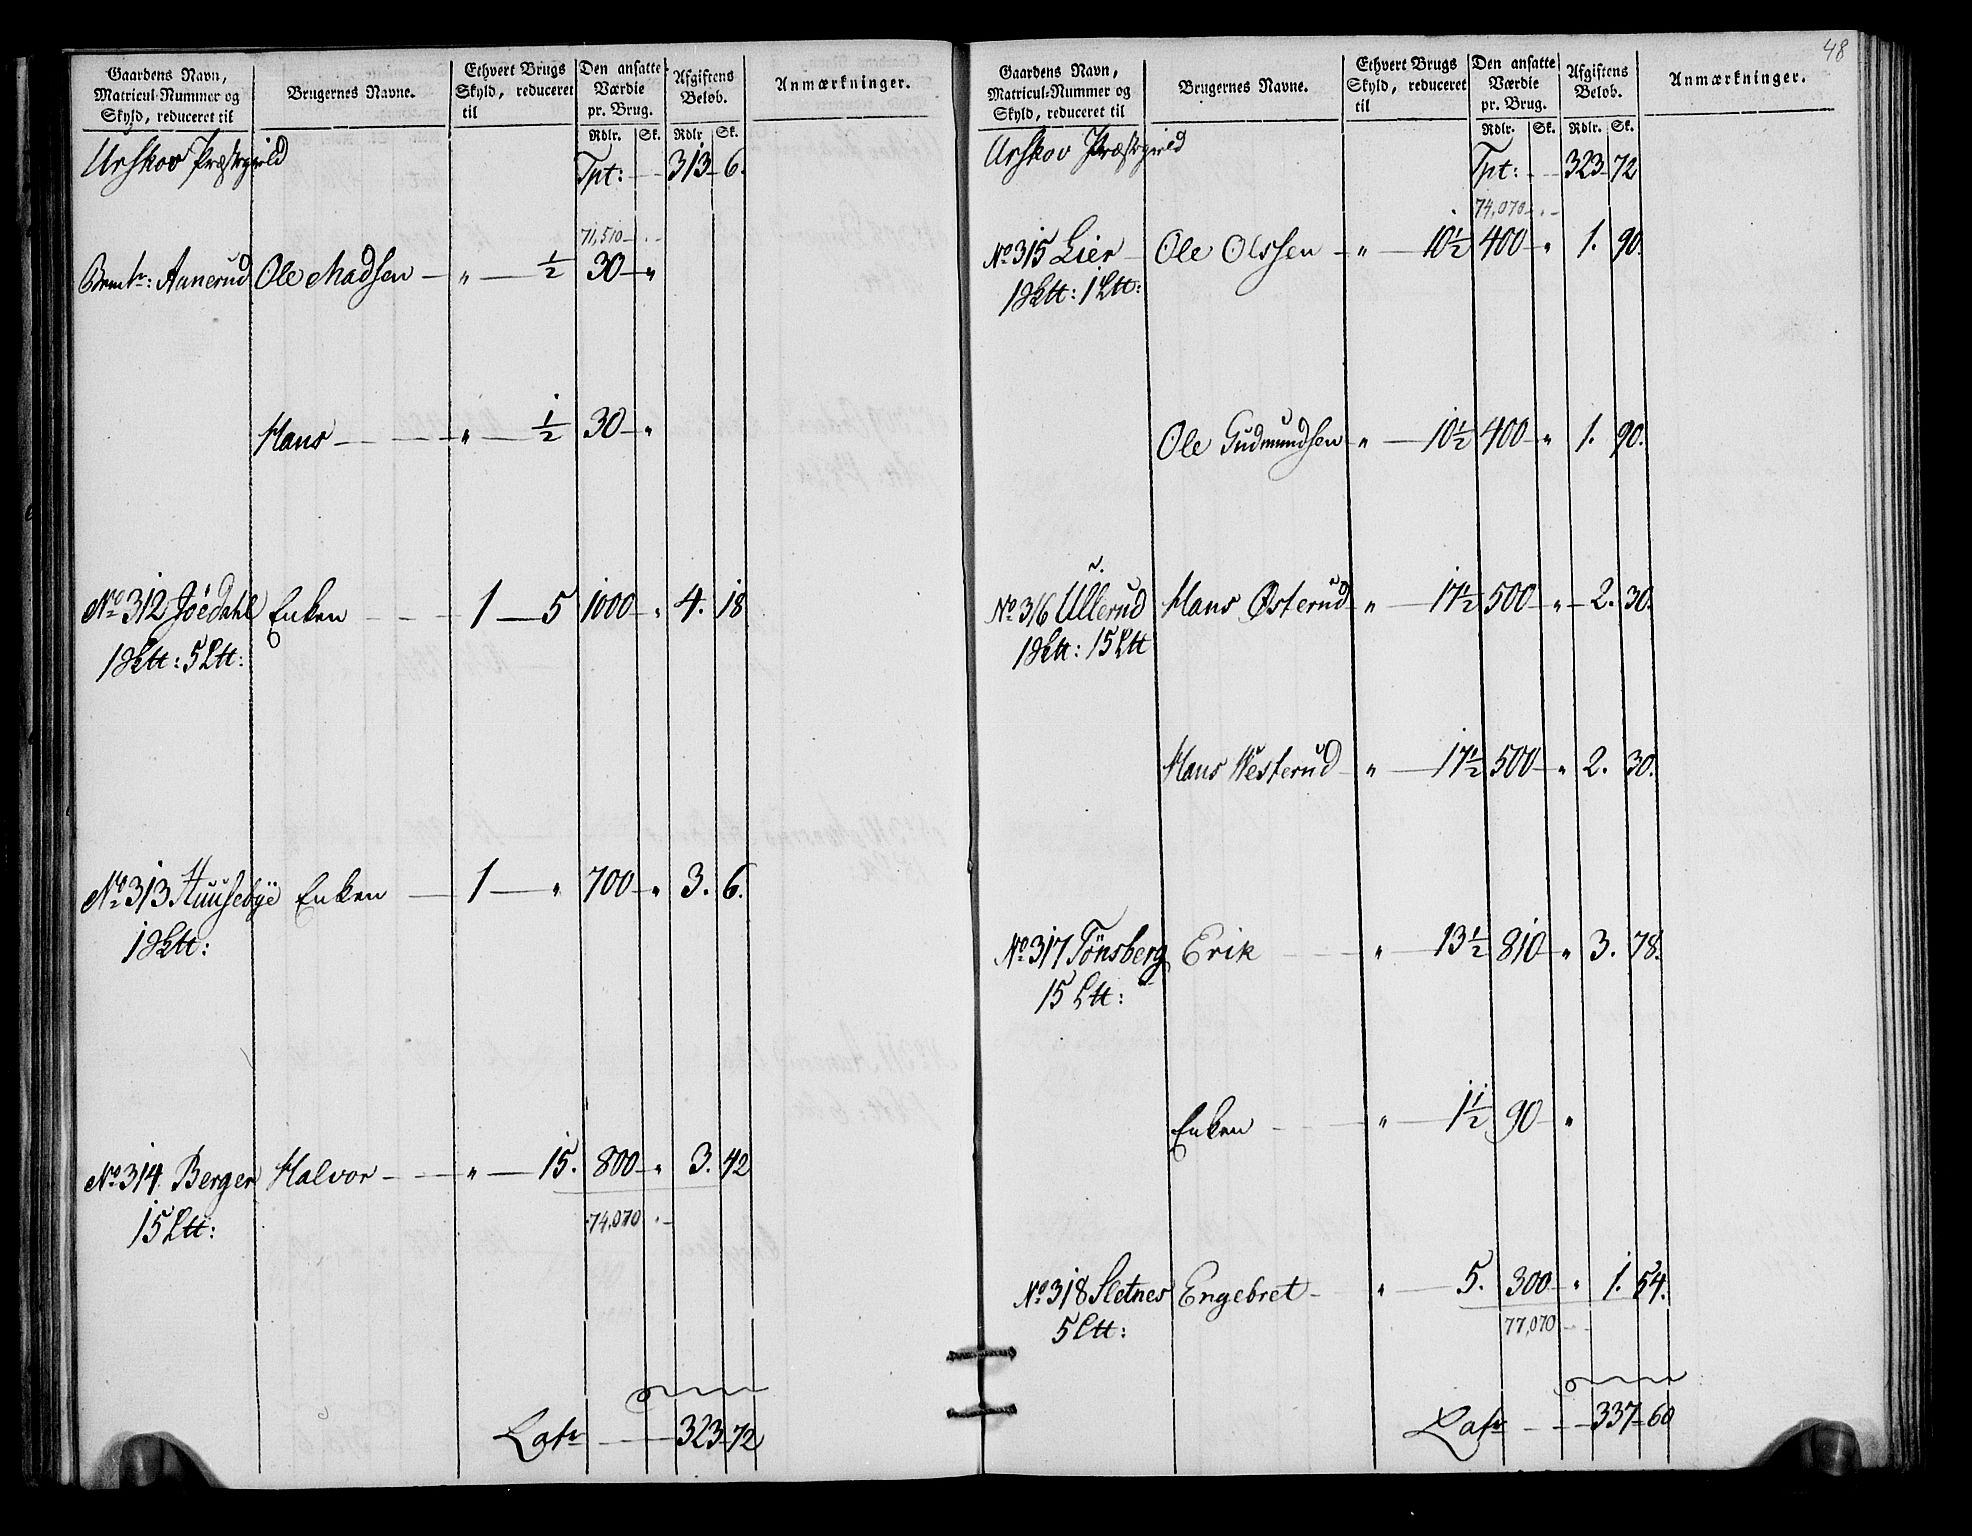 Gaardens Navn, Matricul-Nummer og Skyld, reduceret til | Brugernes Navne. | Ethvert Brugs Skyld, reduceret til | Den ansatte Værdie pr. Brug. Rdlr. Sk. | Afgiftens Beløb. Rdlr Sk. | Anmærkninger.
Urskov Præstegield Tpt: 313 6.
71,510
Aanerud Ole Madsen — " — ½ 30 — "
Hans — " — ½ 30 — "
No 312 Jöedahl Enken 1 — 5 1000 — " 4. 18
1 Sktt: 5 Ltt:
No 313 Huusebÿe Enken 1 — " 700 — " 3. 6.
1 Sktt:
No 314. Berger Halvor — " — 15. 800 — " 3. 42
15 Ltt:
74,070
Latr — 323 72
48
Gaardens Navn, Matricul-Nummer og Skyld, reduceret til | Brugernes Navne. | Ethvert Brugs Skyld, reduceret til | Den ansatte Værdie pr. Brug. Rdlr. Sk. | Afgiftens Beløb. Rdlr. Sk. | Anmærkninger.
Urskov Præstegield Tpt: 323 72
74,070
No 315 Lier Ole Olssen — " — 10½ 400 — " 1. 90.
1 Sktt: 1 Ltt:
Ole Gudmundsen — " — 10½ 400 — " 1. 90.
No 316 Ullerud Hans Østerud " — 17½ 500 — " — 2. 30.
1 Sktt: 15 Ltt
Hans Westerud — " — 17½ 500 — " 2. 30.
No 317 Tönsberg Erik — " — 13½ 810 — " 3. 78.
15 Ltt:
Enken — " — 1½ 90 — "
No 318 Sletnes Engebret — " — 5. 300 — " 1. 54.
5 Ltt:
77,070
Latr — 337 60